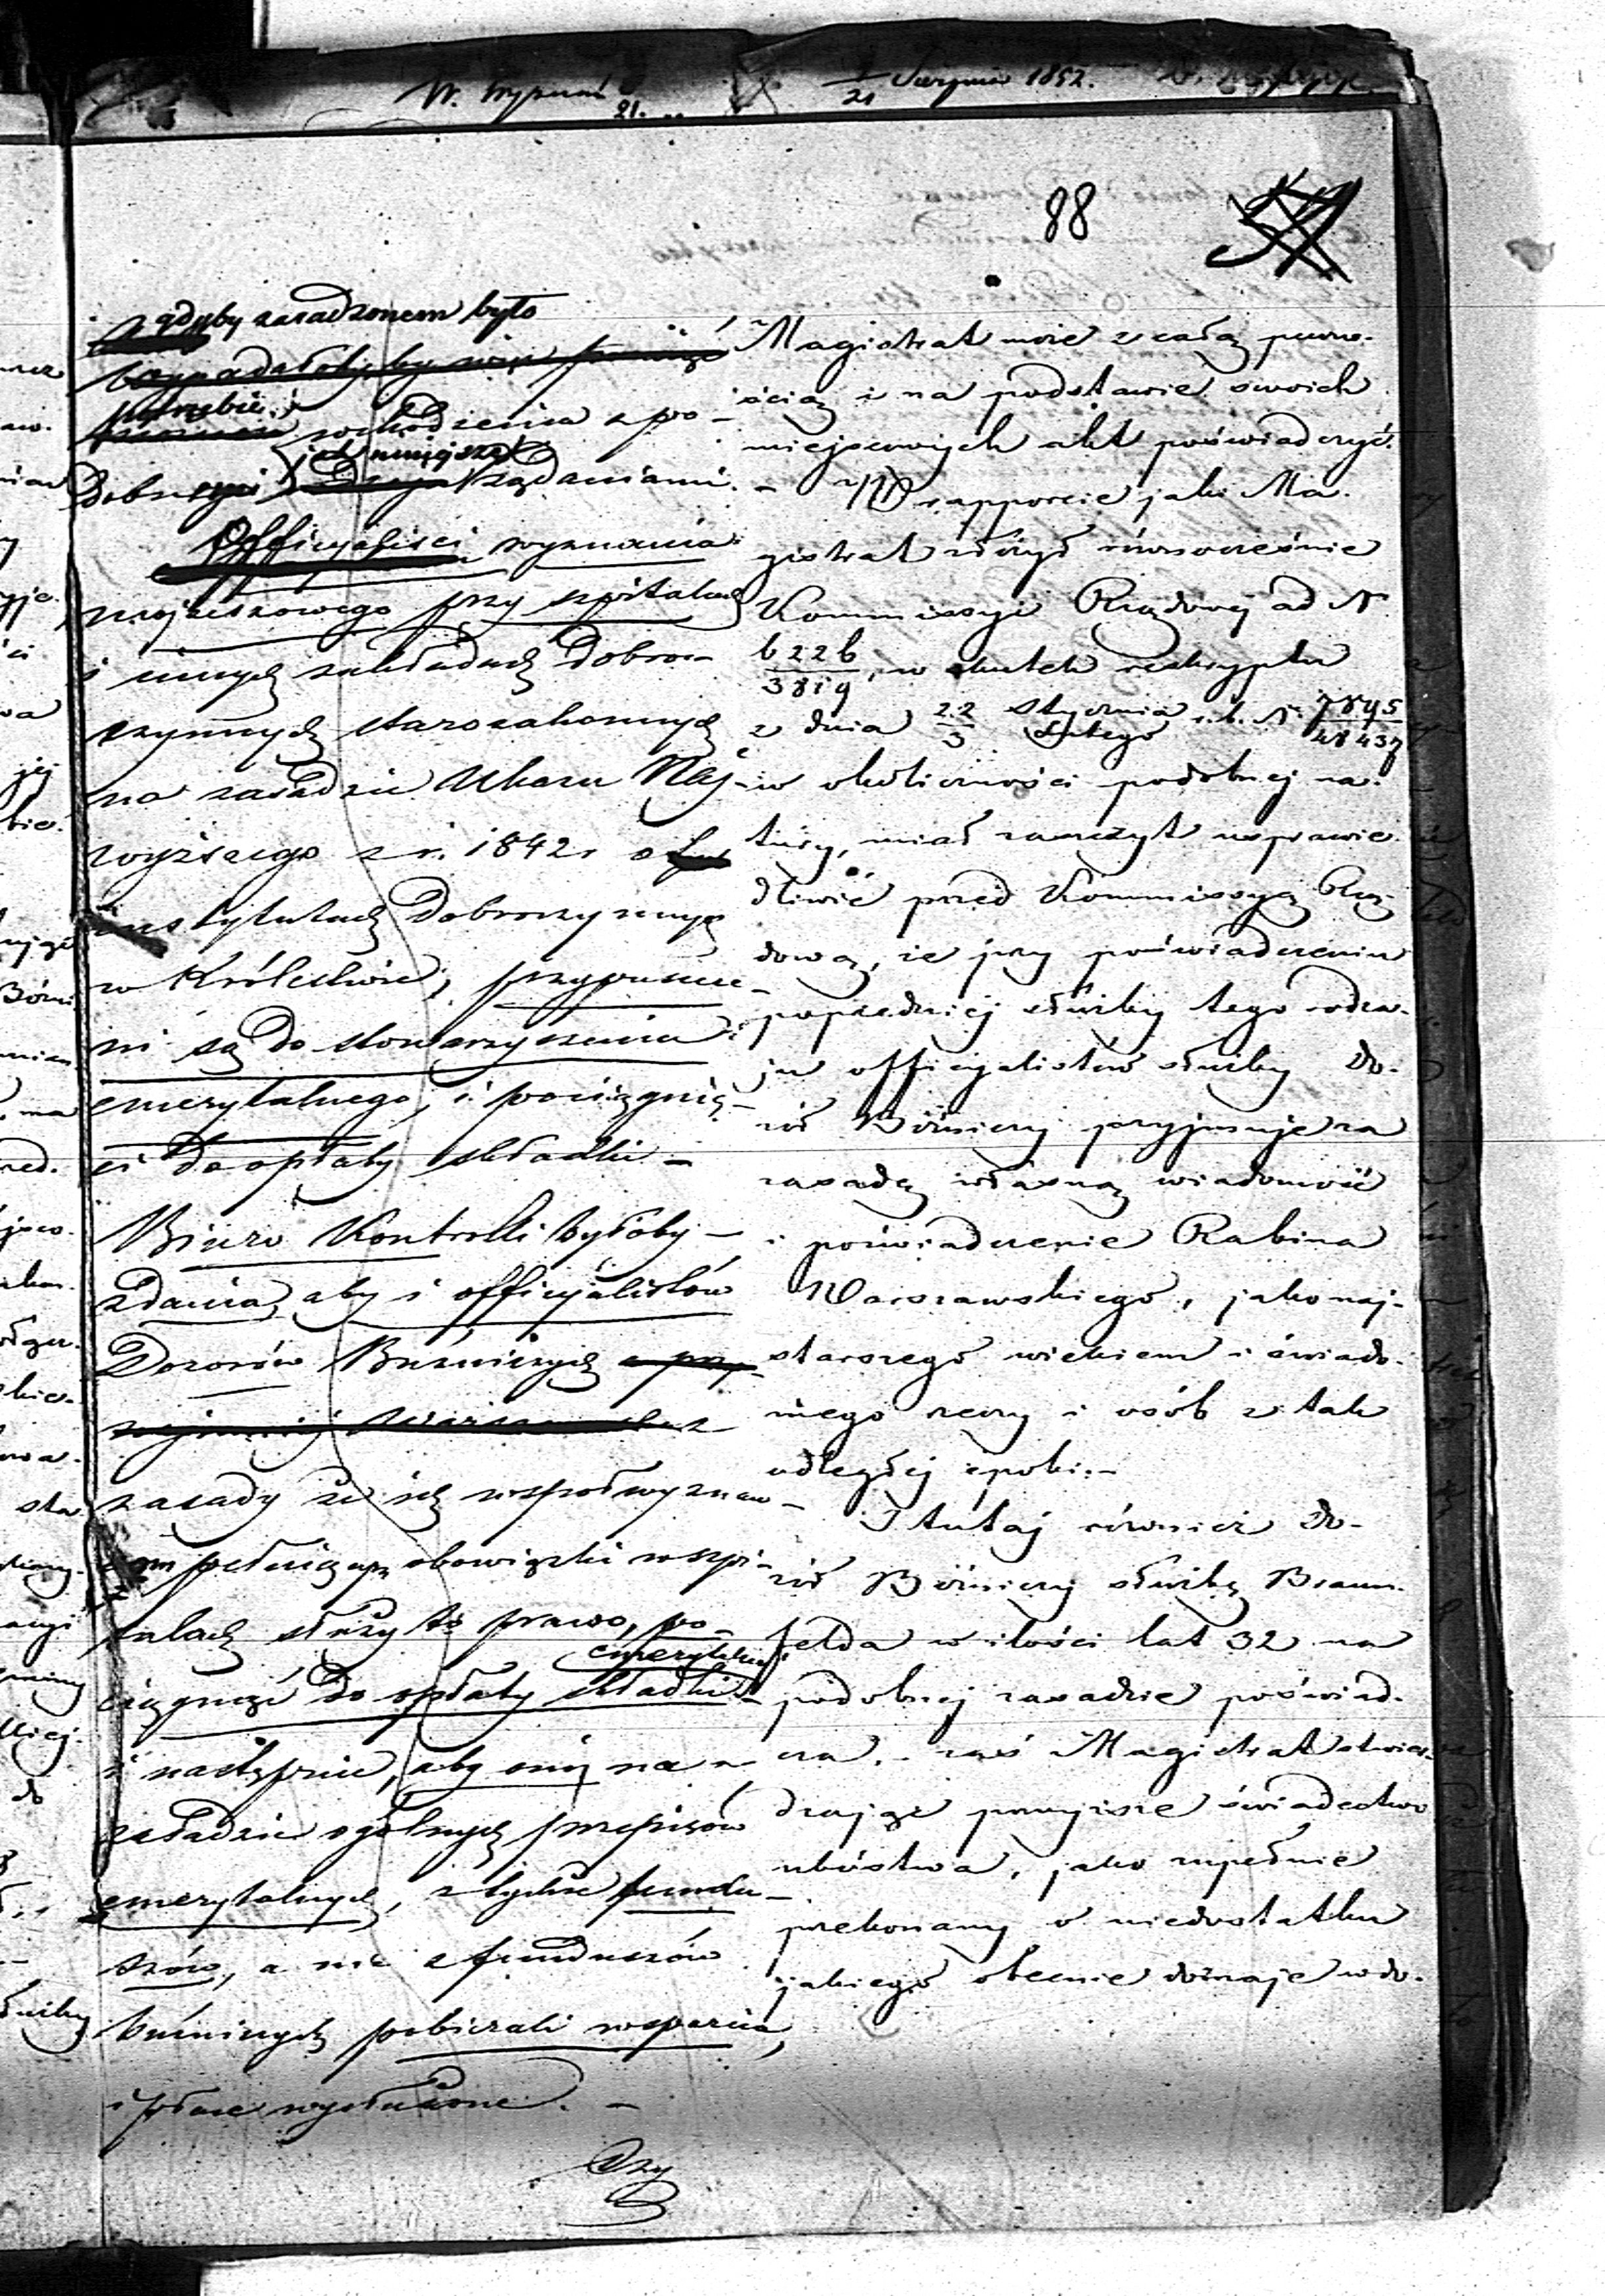 Sierpnia 1852.
88
gdyby zasadzonem było
potrzebie
wchodzenia z po-
jak niniejsze
dobnemi żądaniami. -
Officyaliści wyznania
mojżeszowego przy szpitalach
i innych zakładach dobro-
czynnych starozakonnych
na zasadzie Ukazu Naj-
wyższego z r. 1842 o
instytutach dobroczynnych
w Królestwie, przypuszcze-
ni są do stowarzyszenia
emerytalnego, i pociągnię-
ci do opłaty składki -
Biuro Kontrolli byłoby -
zdania, aby i officyalistów
Dozorów Bużniczych
z
zasady że ich współwyznaw-
com pełniącym obowiązki w szpi-
talach służy to prawo, po-
emerytalnej
ciągnąć do opłaty składki -
i następnie, aby oni na -
zasadzie ogólnych przepisów
emerytalnych, z tychże fundu-
szów, a nie z funduszów
bużniczych pobierali wsparcia,
i płace wysłużone. -
Magistrat może z całą pewno-
ścią i na podstawie swoich
miejscowych akt poświadczyć.
- W rapporcie jaki Ma-
gistrat złożył równocześnie
Kommissyi Rządowej ad N
6226/3819, w skutek reskryptu
z dnia 22/3 Stycznia/Lutego r. b. N. 7895/48437
w okoliczności podobnej na-
tury, miał zaszczyt usprawie-
dliwić przed Kommissyą Rzą-
dową, że przy poświadczeniu
poprzedniej służby tego rodza-
ju officyalistów służby Do-
zór Bóżniczy przyjmuje za
zasadę własną wiadomość
i poświadczenie Rabina
Warszawskiego, jako naj-
starszego wiekiem i świado-
mego rzeczy i osób z tak
odległej epoki. -
I tutaj również Do-
zór Bóżniczy służbę Braun-
felda w ilości lat 32 na
podobnej zasadzie poświad-
cza. - zaś Magistrat stwier-
dzając powyższe świadectwo
ubóstwa, jako zupełnie
przekonany o niedostatku
jakiego obecnie doznaje wdo-